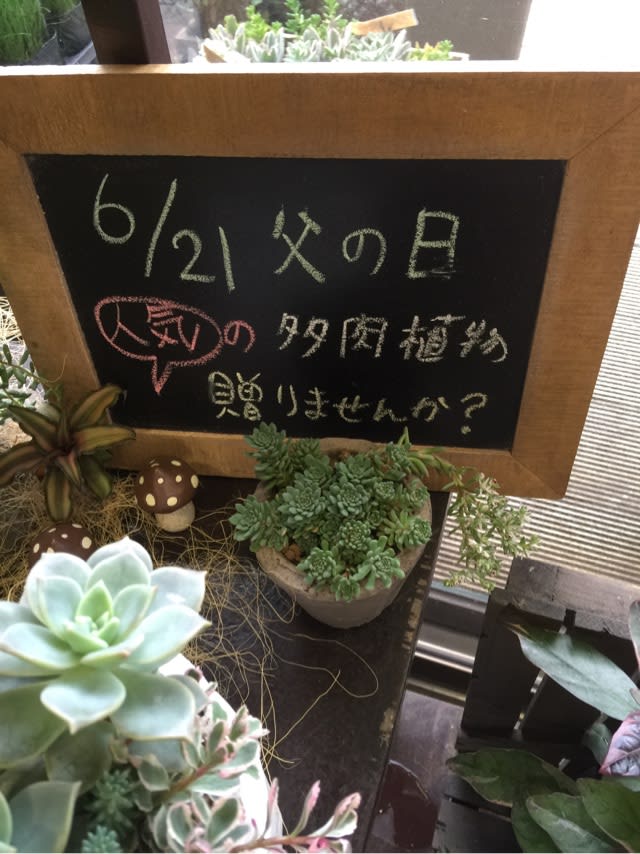 6/21 父の日
人気の 多肉植物
贈りませんか?